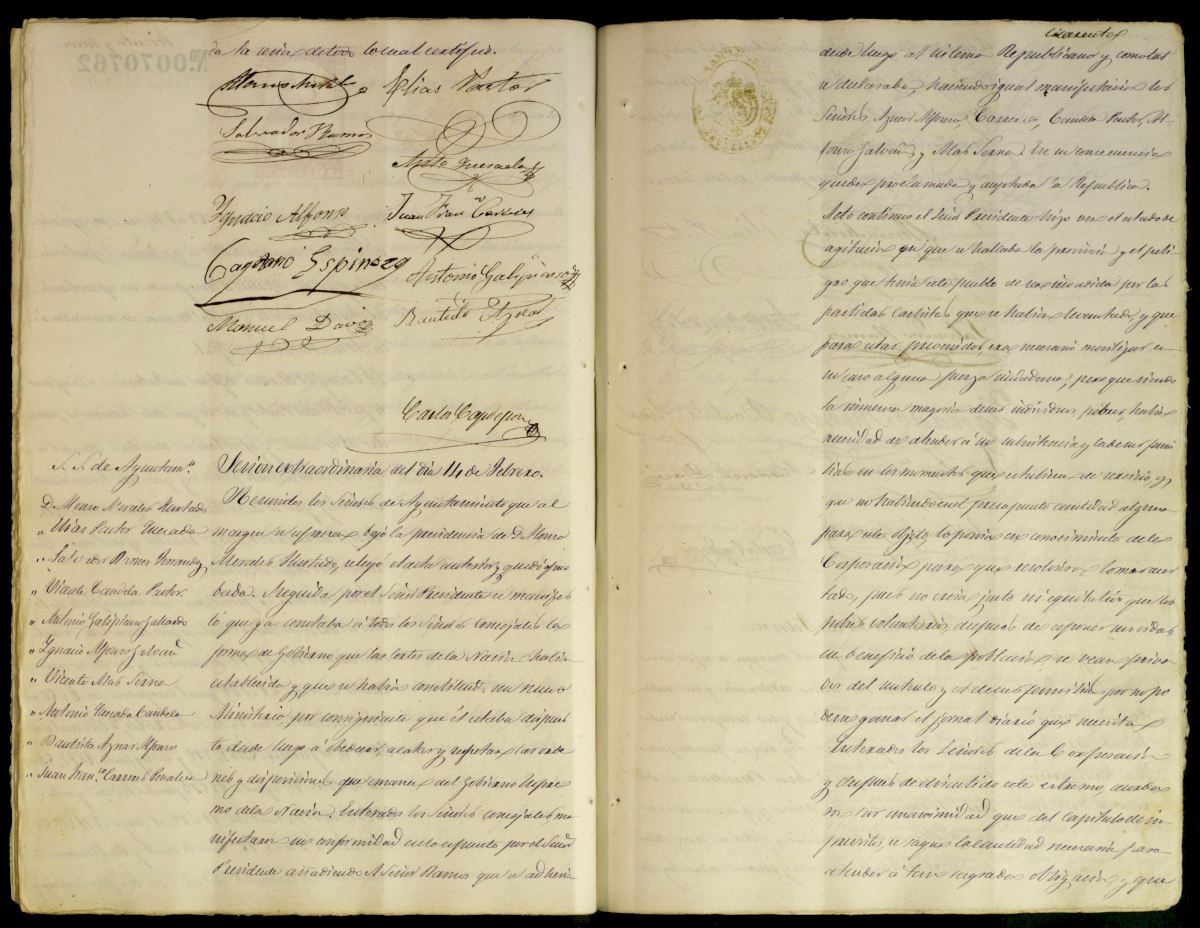 da la unica de todo lo cual certifico.
Elias Pastor
Salvador Ramos
Anto Quesada
Ignacio Alfonso
Juan Fran.co Carreres
Cayetano Espinoza
Antonio Galipienso
Manuel Davo
Bautista Aznar
Carlos
S. S. de Ayuntam.to
D. Alonso Morales Hurtado
" Elias Pastor Quesada
" Salvador Ramos Fernandez
" Vicente Candela Pastor.
" Antonio Galipienso Gallardo
" Ygnacio Alfonso Galvañ
" Vicente Mas Serna
" Antonio Quesada Candela
" Bautista Aznar Alfonso
" Juan Fran.co Carreres Penalva
Sesion extraordinaria del dia 14 de Febrero.
Reunidos los Señores de Ayuntamiento que al
margen se espresan bajo la presidencia de D. Alonso
Morales Hurtado, se leyó el acta anterior y quedó apro
bada. Seguida por el Señor Presidente se manifes
tó que ya constaba á todos los Señores Concejales la
forma de Gobierno que las Cortes de la Nacion habia
establecido y que se habia constituido un nuevo
Ministerio por consiguiente que él estaba dispues
to desde luego á obedecer, acatar y respetar las orde
nes y disposiciones que emanen del Gobierno Supre
mo de la Nacion. Enterados los Señores concejales, ma
nifestaron su conformidad en lo espuesto por el Señor
Presidente añadiendo el Señor Ramos que se adheria
Nº. 0070762
Cuarenta
desde luego al sistema Republicano y como tal
se declaraba, haciendo igual manifestacion los
Señores, Aznar Alfonso, Carreres, Candela Pastor, Al
fonso Galvañ, y Mas Serna. En su consecuencia
queda proclamada y aceptada la Republica.
Acto continuo el Señor Presidente hizo ver el estado de
agitacion en que se hallaba la provincia y el peli
gro que tenia este pueblo de ser invadida por las
partidas carlistas que se habian levantado y que
para estar prevenidos, era necesario movilizar en
su caso alguna fuerza ciudadana, pero que siendo
la inmensa mayoria de sus individuos pobres, habia
necesidad de atender á su subsistencia y la de sus fami
lias en los momentos que estubiesen de servicio, y
que no habiendo en el presupuesto cantidad alguna
para este objeto, lo ponia en conocimiento de la
Corporacion para que resolviera lo mas acer
tado, pues no seria justo ni equitativo que los
pobres voluntarios, despues de esponer sus vidas
en beneficio de la poblacion se vean priva
dos del sustento y el de sus familias por no po
der ganar el jornal diario que necesitan
Enterados los Señores de la Corporacion
y despues de discutido este estremo, acorda
ron por unanimidad que del capitulo de im
previstos se saque la cantidad necesaria para
atender á tan sagrada obligacion y que